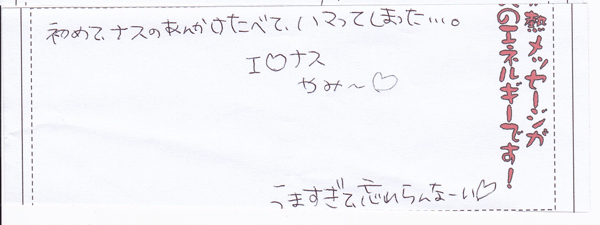 熱メッセージが
のエネルギーです！
初めて、ナスのあんかけたべて、ハマってしまった…。
I♡ナス
やみ〜♡
うますぎて、忘れらんなーい♡